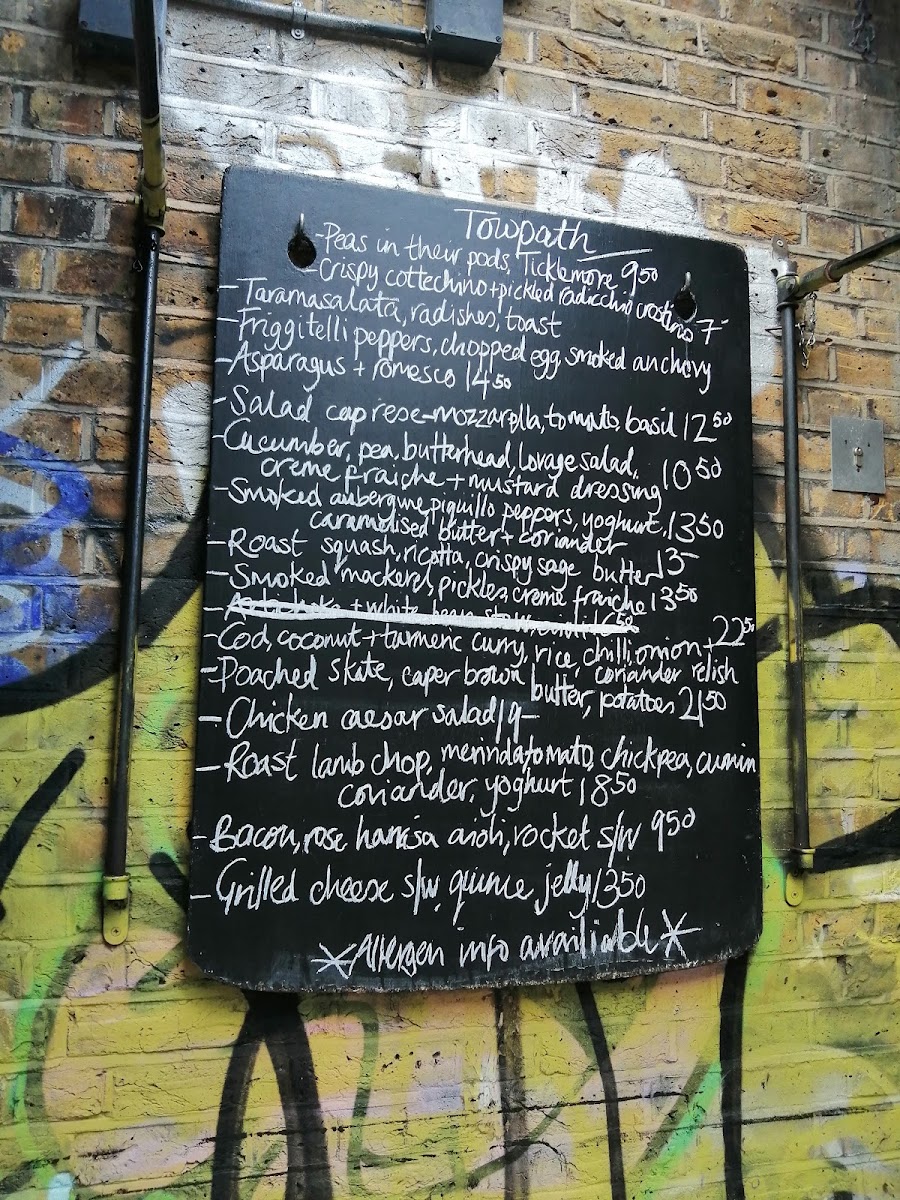 Towpath
-Peas in their pods, Ticklemore 9.50
-Crispy cottechino + pickled radicchio crostino 7-
-Taramasalata, radishes, toast
-Friggitelli peppers, chopped egg, smoked anchovy
-Asparagus + romesco 14.50
-Salad caprese-mozzarella, tomato, basil 12.50
-Cucumber, pea, butterhead, lovage salad, 10.50
creme fraiche + mustard dressing
-Smoked aubergine, piquillo peppers, yoghurt, 13.50
caramelised butter + coriander
-Roast squash, ricotta, crispy sage butter 13-
-Smoked mackerel, pickles, creme fraiche 13.50
- + white bean stew,
-Cod, coconut + turmeric curry, rice, chilli, onion + 22.50
coriander relish
-Poached skate, caper brown butter, potatoes 21.50
-Chicken caesar salad 19-
-Roast lamb chop, merinda tomato, chickpea, cumin
coriander, yoghurt 18.50
-Bacon, rose harrisa aioli, rocket s/w 9.50
-Grilled cheese s/w, quince jelly 13.50
*Allergen info availiable*